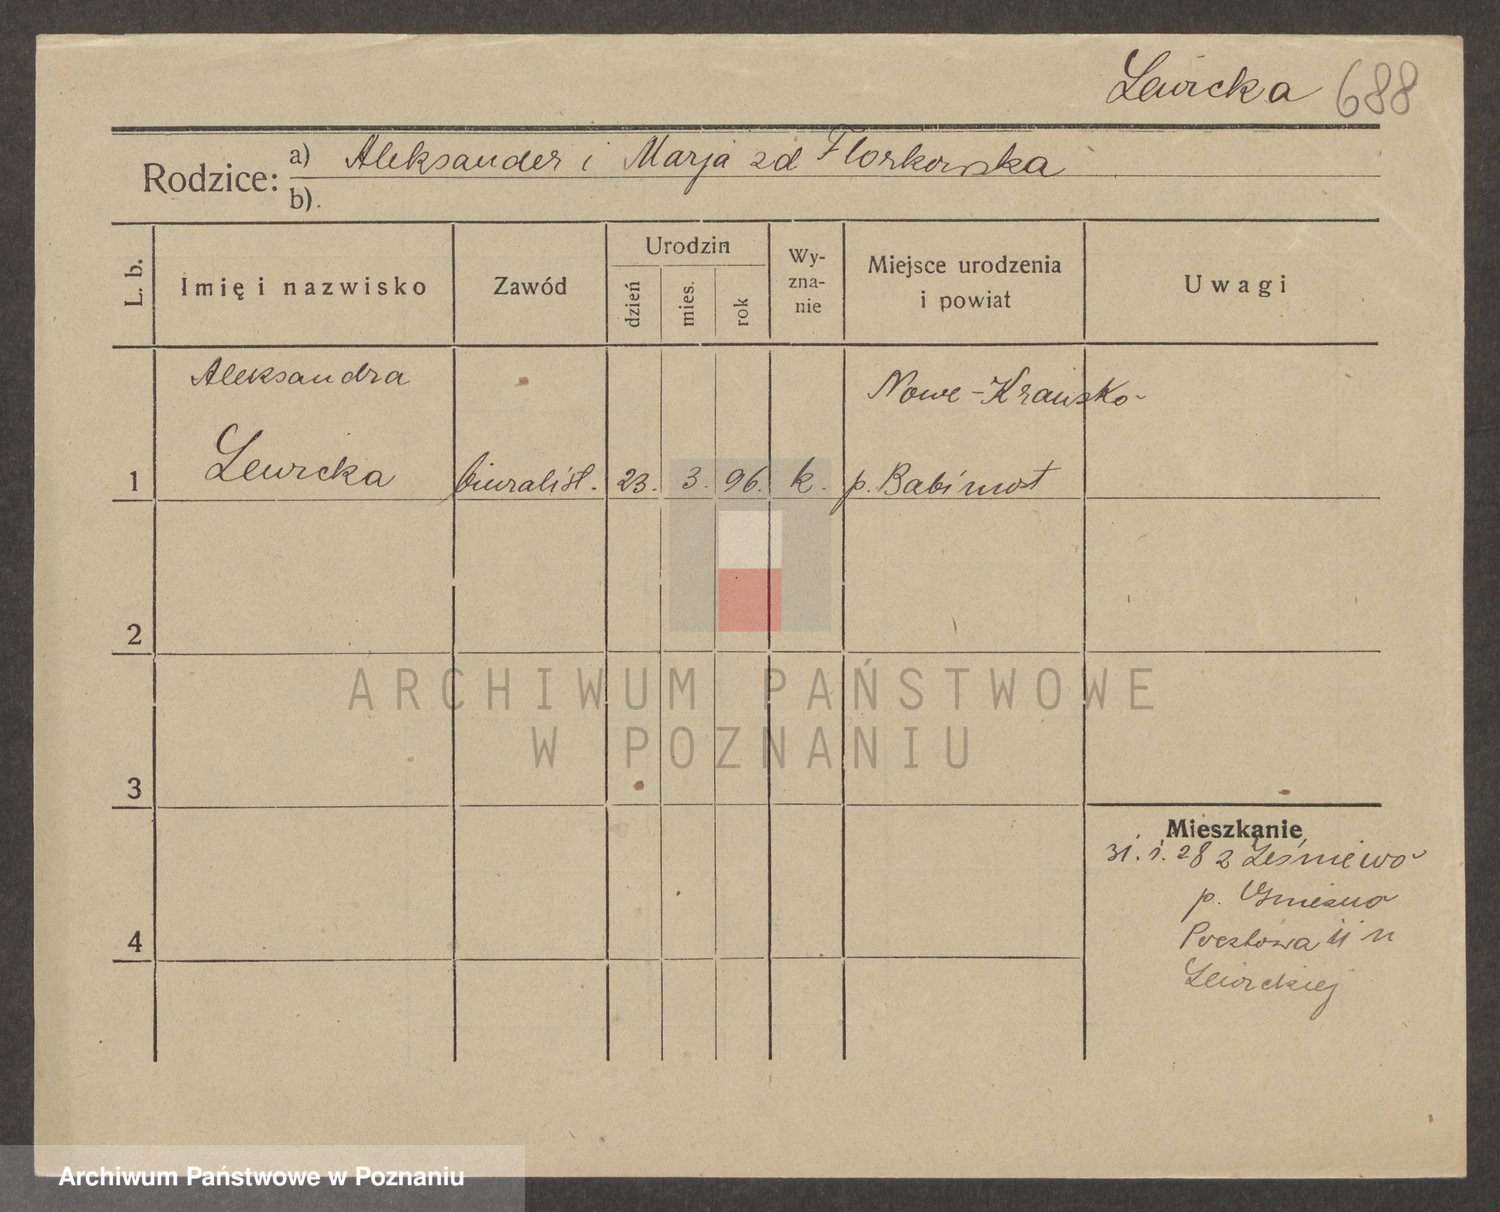 Lewicka 688
Rodzice: a) Aleksander i Marja zd Florkowska
b).
L. b. Imię i nazwisko Zawód Urodzin dzień mies. rok Wy-zna-nie Miejsce urodzenia i powiat Uwagi
Aleksandra Nowe-Kramsko-
1 Lewicka biuralist. 23. 3. 96. k. p. Babimost
2
ARCHIWUM PAŃSTWOWE
W POZNANIU
3
Mieszkanie
31. 1. 28 z Leśniewo
p. Gniezno
4 Pocztowa 11 u
Lewickiej
Archiwum Państwowe w Poznaniu